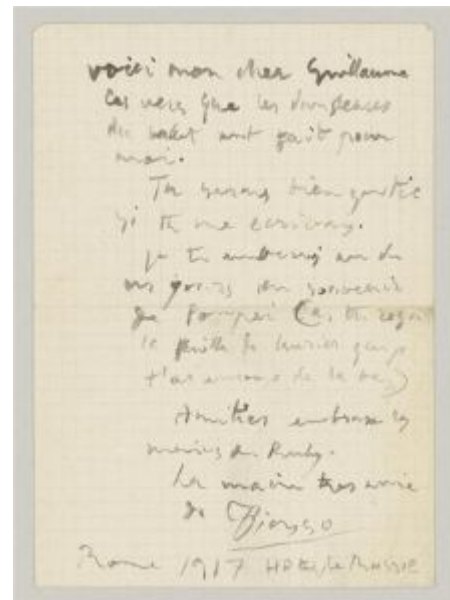 voici mon cher Guillaume
les vers que les danseuses
du ballet ont fait pour
moi.
Tu serais bien gentil
si tu me ecrivais.
je tu un de
ces jours un souvenir
de Pompei (As tu reçu
la feuille de laurier que je
t'ai de la
Amitiés embrasse les
mains de Ruby.
La main très amie
de Picasso
Rome 1917 Hotel de Russie